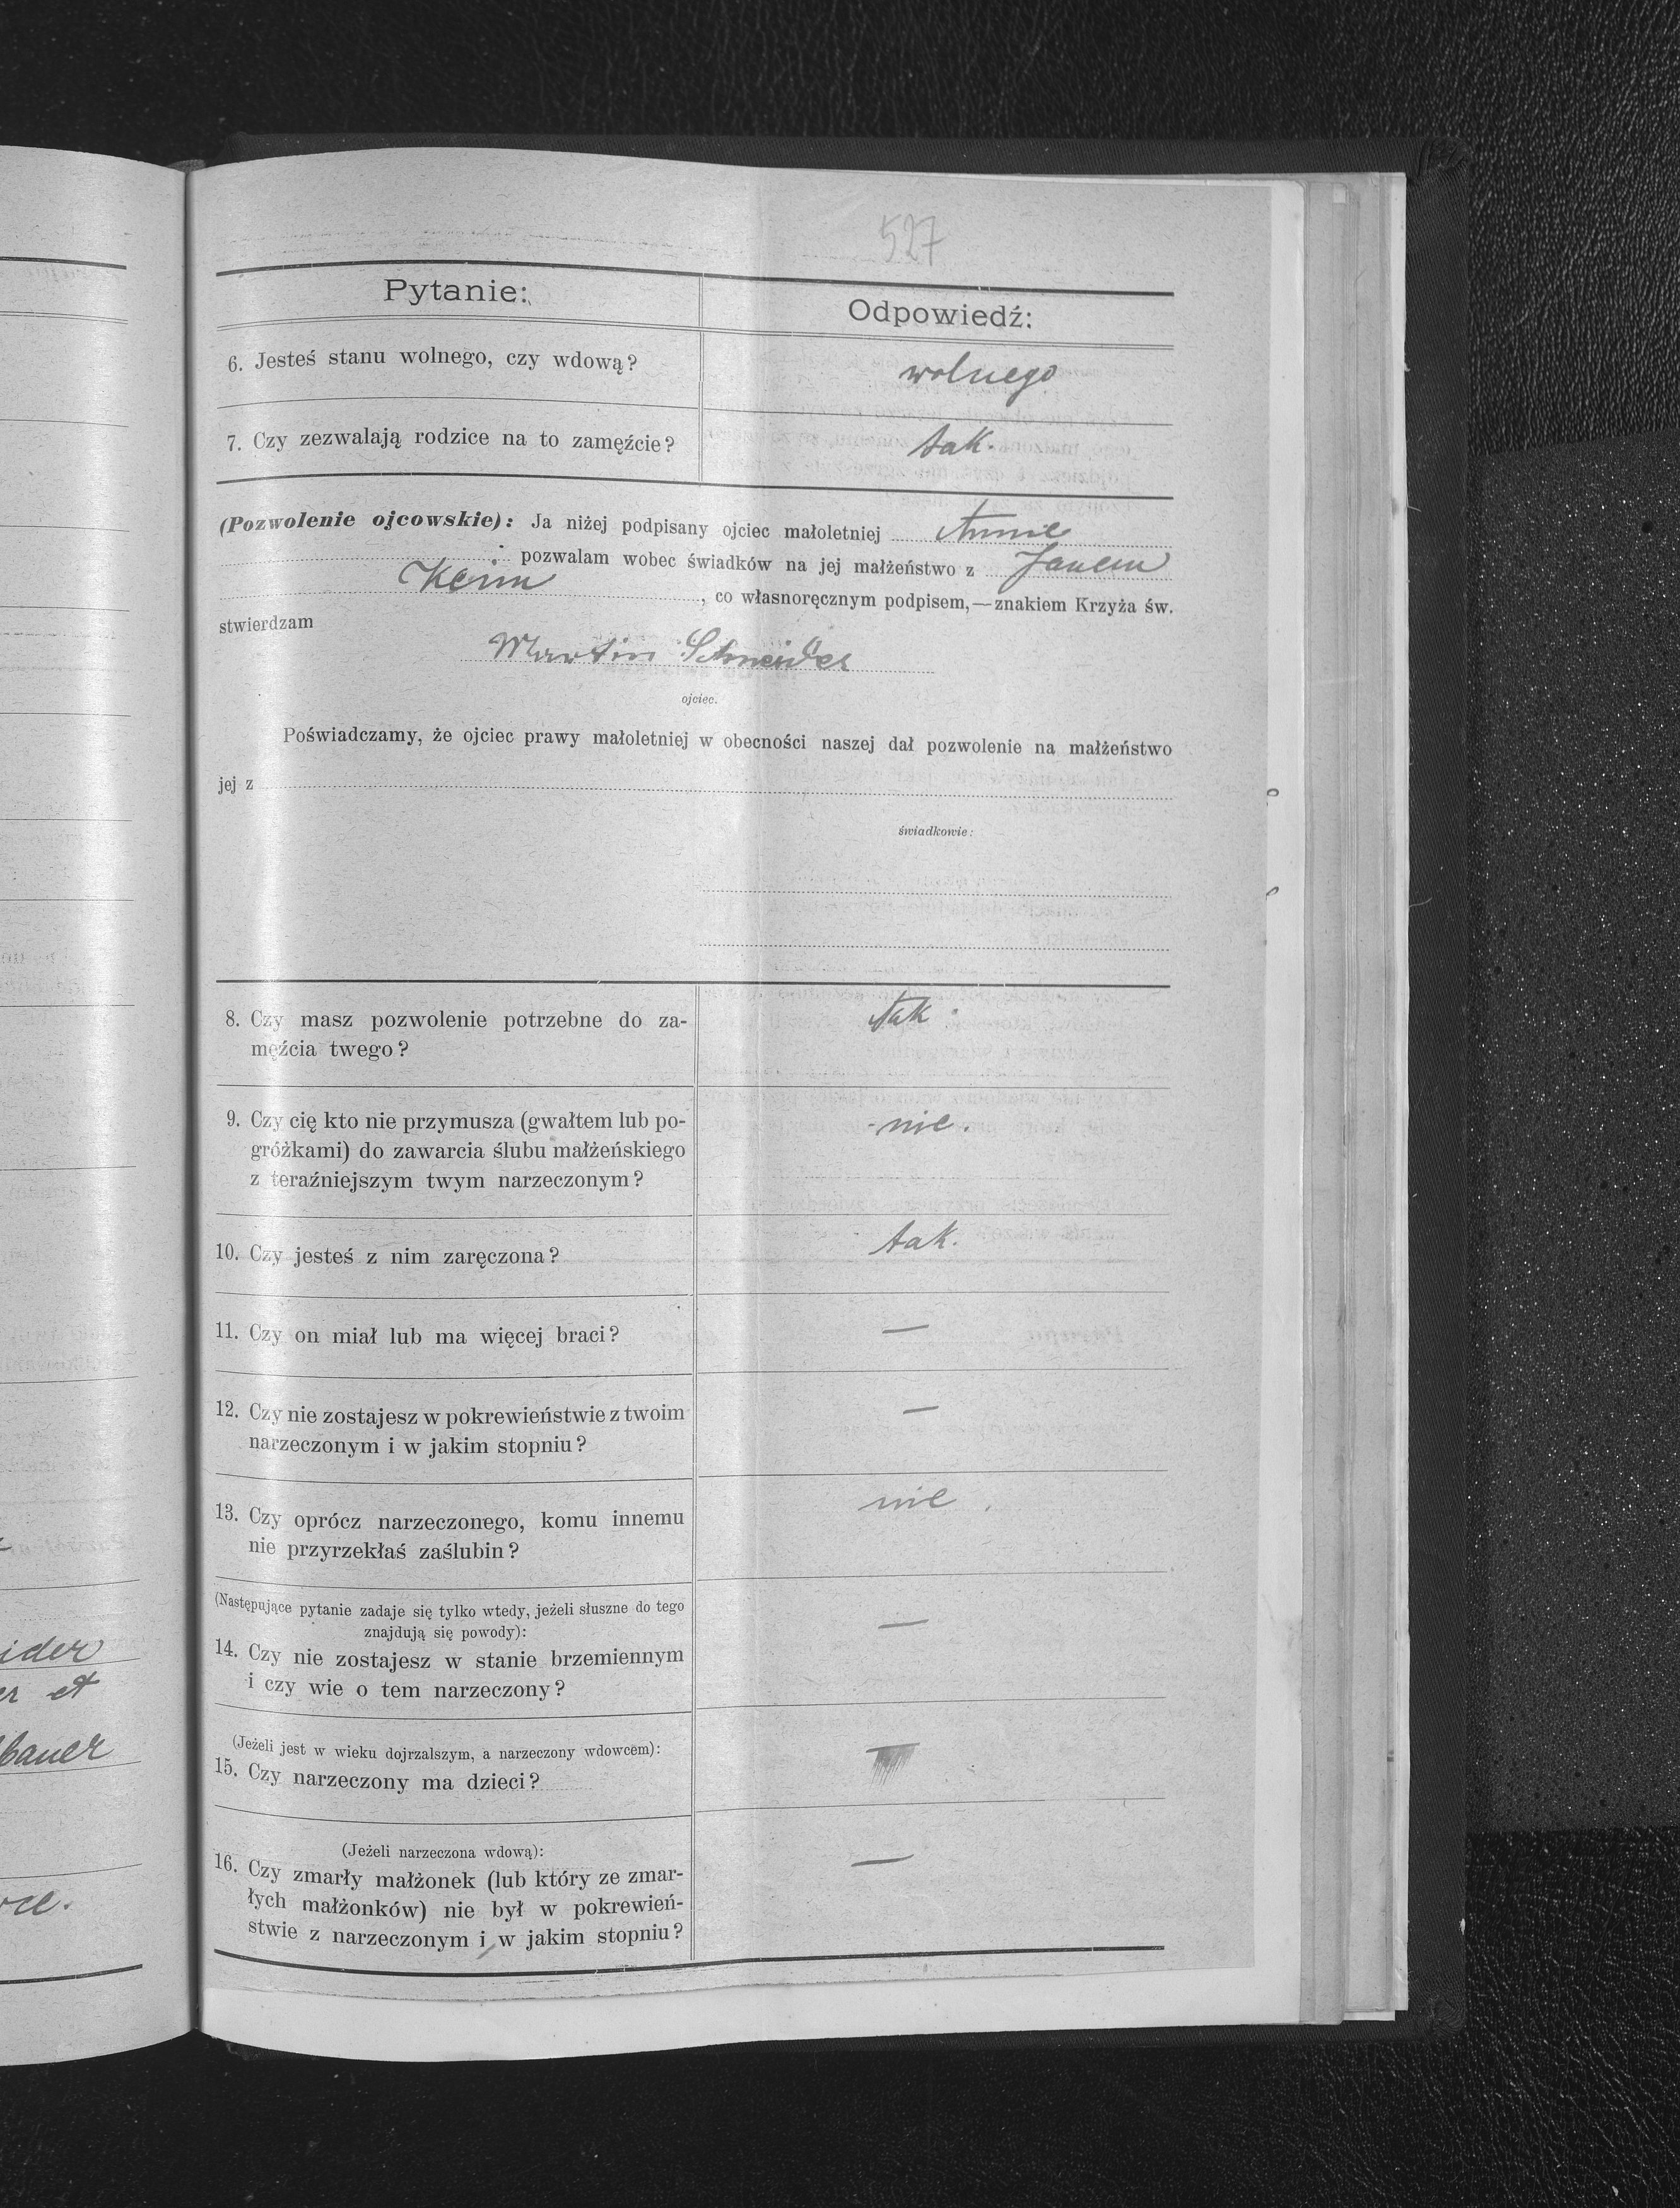 527
Pytanie:
Odpowiedź:
6. Jesteś stanu wolnego, czy wdową?
wolnego
7. Czy zezwalają rodzice na to zamęźcie?
tak.
(Pozwolenie ojcowskie): Ja niżej podpisany ojciec małoletniej Annie
pozwalam wobec świadków na jej małżeństwo z Janem
Keim, co własnoręcznym podpisem,—znakiem Krzyża św.
stwierdzam
Martin Schneider
ojciec.
Poświadczamy, że ojciec prawy małoletniej w obecności naszej dał pozwolenie na małżeństwo
jej z
świadkowie:
8. Czy masz pozwolenie potrzebne do za-
męźcia twego?
tak
9. Czy cię kto nie przymusza (gwałtem lub po-
gróżkami) do zawarcia ślubu małżeńskiego
z teraźniejszym twym narzeczonym?
nie.
10. Czy jesteś z nim zaręczona?
tak.
11. Czy on miał lub ma więcej braci?
—
12. Czy nie zostajesz w pokrewieństwie z twoim
narzeczonym i w jakim stopniu?
—
13. Czy oprócz narzeczonego, komu innemu
nie przyrzekłaś zaślubin?
nie.
(Następujące pytanie zadaje się tylko wtedy, jeżeli słuszne do tego
znajdują się powody):
14. Czy nie zostajesz w stanie brzemiennym
i czy wie o tem narzeczony?
—
(Jeżeli jest w wieku dojrzalszym, a narzeczony wdowcem):
15. Czy narzeczony ma dzieci?
—
(Jeżeli narzeczona wdową):
16. Czy zmarły małżonek (lub który ze zmar-
łych małżonków) nie był w pokrewień-
stwie z narzeczonym i w jakim stopniu?
—
ider
er et
bauer